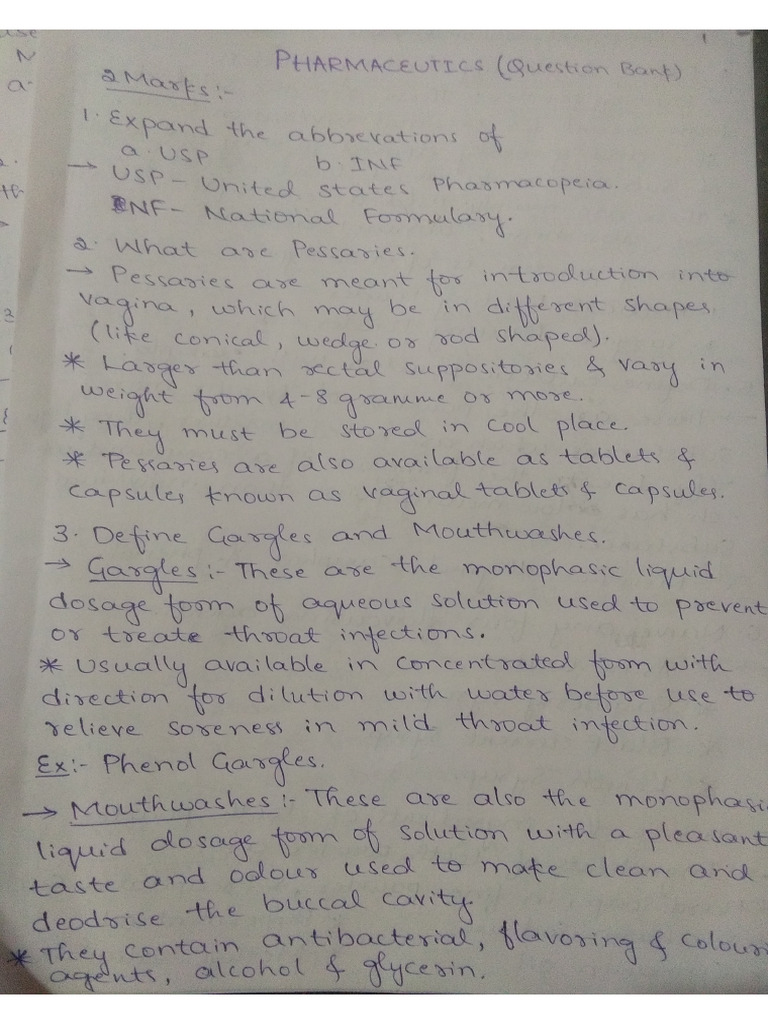 PHARMACEUTICS (Question Bank)
2 Marks:-
1. Expand the abbrevations of
a. USP b. INF
→ USP - United states Pharmacopeia.
NF - National Formulary.
2. What are Pessaries.
→ Pessaries are meant for introduction into
vagina, which may be in different shapes
(like conical, wedge or rod shaped).
* Larger than rectal suppositories & vary in
weight from 4-8 gramme or more.
* They must be stored in cool place.
* Pessaries are also available as tablets &
capsules known as vaginal tablets & capsules.
3. Define Gargles and Mouthwashes.
→ Gargles :- These are the monophasic liquid
dosage form of aqueous solution used to prevent
or treate throat infections.
* Usually available in concentrated form with
direction for dilution with water before use to
relieve soreness in mild throat infection.
Ex:- Phenol Gargles.
→ Mouthwashes :- These are also the monophasi
liquid dosage form of solution with a pleasant
taste and odour used to make clean and
deodrise the buccal cavity.
* They contain antibacterial, flavoring & colouri
agents, alcohol & glycerin.